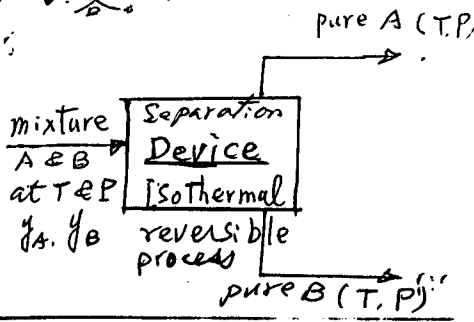 pure A (T,P)
mixture
A & B
at T & P
yA, yB
Separation
Device
Isothermal
reversible
process
pure B (T, P)